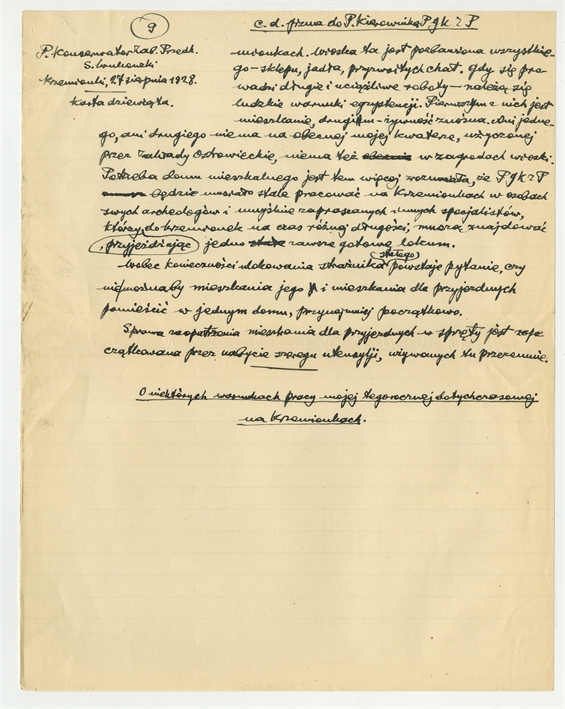 9
c. d. pisma do P. Kierownika P g k z P
P. Konserwator Zab. Przedh.
S. Krukowski
Krzemionki, 27 sierpnia 1928.
Karta dziewiąta.
mionkach. Wioska ta jest pozbawiona wszystkie-
go - sklepu, jadła, przyzwoitych chat. Gdy się pro-
wadzi długie i uciążliwe roboty - należą się
ludzkie warunki egzystencji. Pierwszym z nich jest
mieszkanie, drugim - żywność znośna. Ani jedne-
go, ani drugiego niema na obecnej mojej kwaterze, użyczonej
przez Zakłady Ostrowieckie, niema też w zagrodach wioski.
Potrzeba domu mieszkalnego jest tem więcej zrozumiała, że P g k z P
będzie musiało stale pracować na Krzemionkach w osobach
swych archeologów i umyślnie zapraszanych innych specjalistów,
którzy, do Krzemionek na czas różnej długości, muszą znajdować
przyjeżdżając jedno zawsze gotowe lokum.
Wobec konieczności ulokowania strażnika stałego powstaje pytanie, czy
nie możnaby mieszkania jego i mieszkania dla przyjezdnych
pomieścić w jednym domu, przynajmniej początkowo.
Sprawa zaopatrzenia mieszkania dla przyjezdnych w sprzęty jest zapo-
czątkowana przez nabycie szeregu utensylji, używanych tu przezemnie.
O niektórych warunkach pracy mojej tegorocznej dotychczasowej
na Krzemionkach.